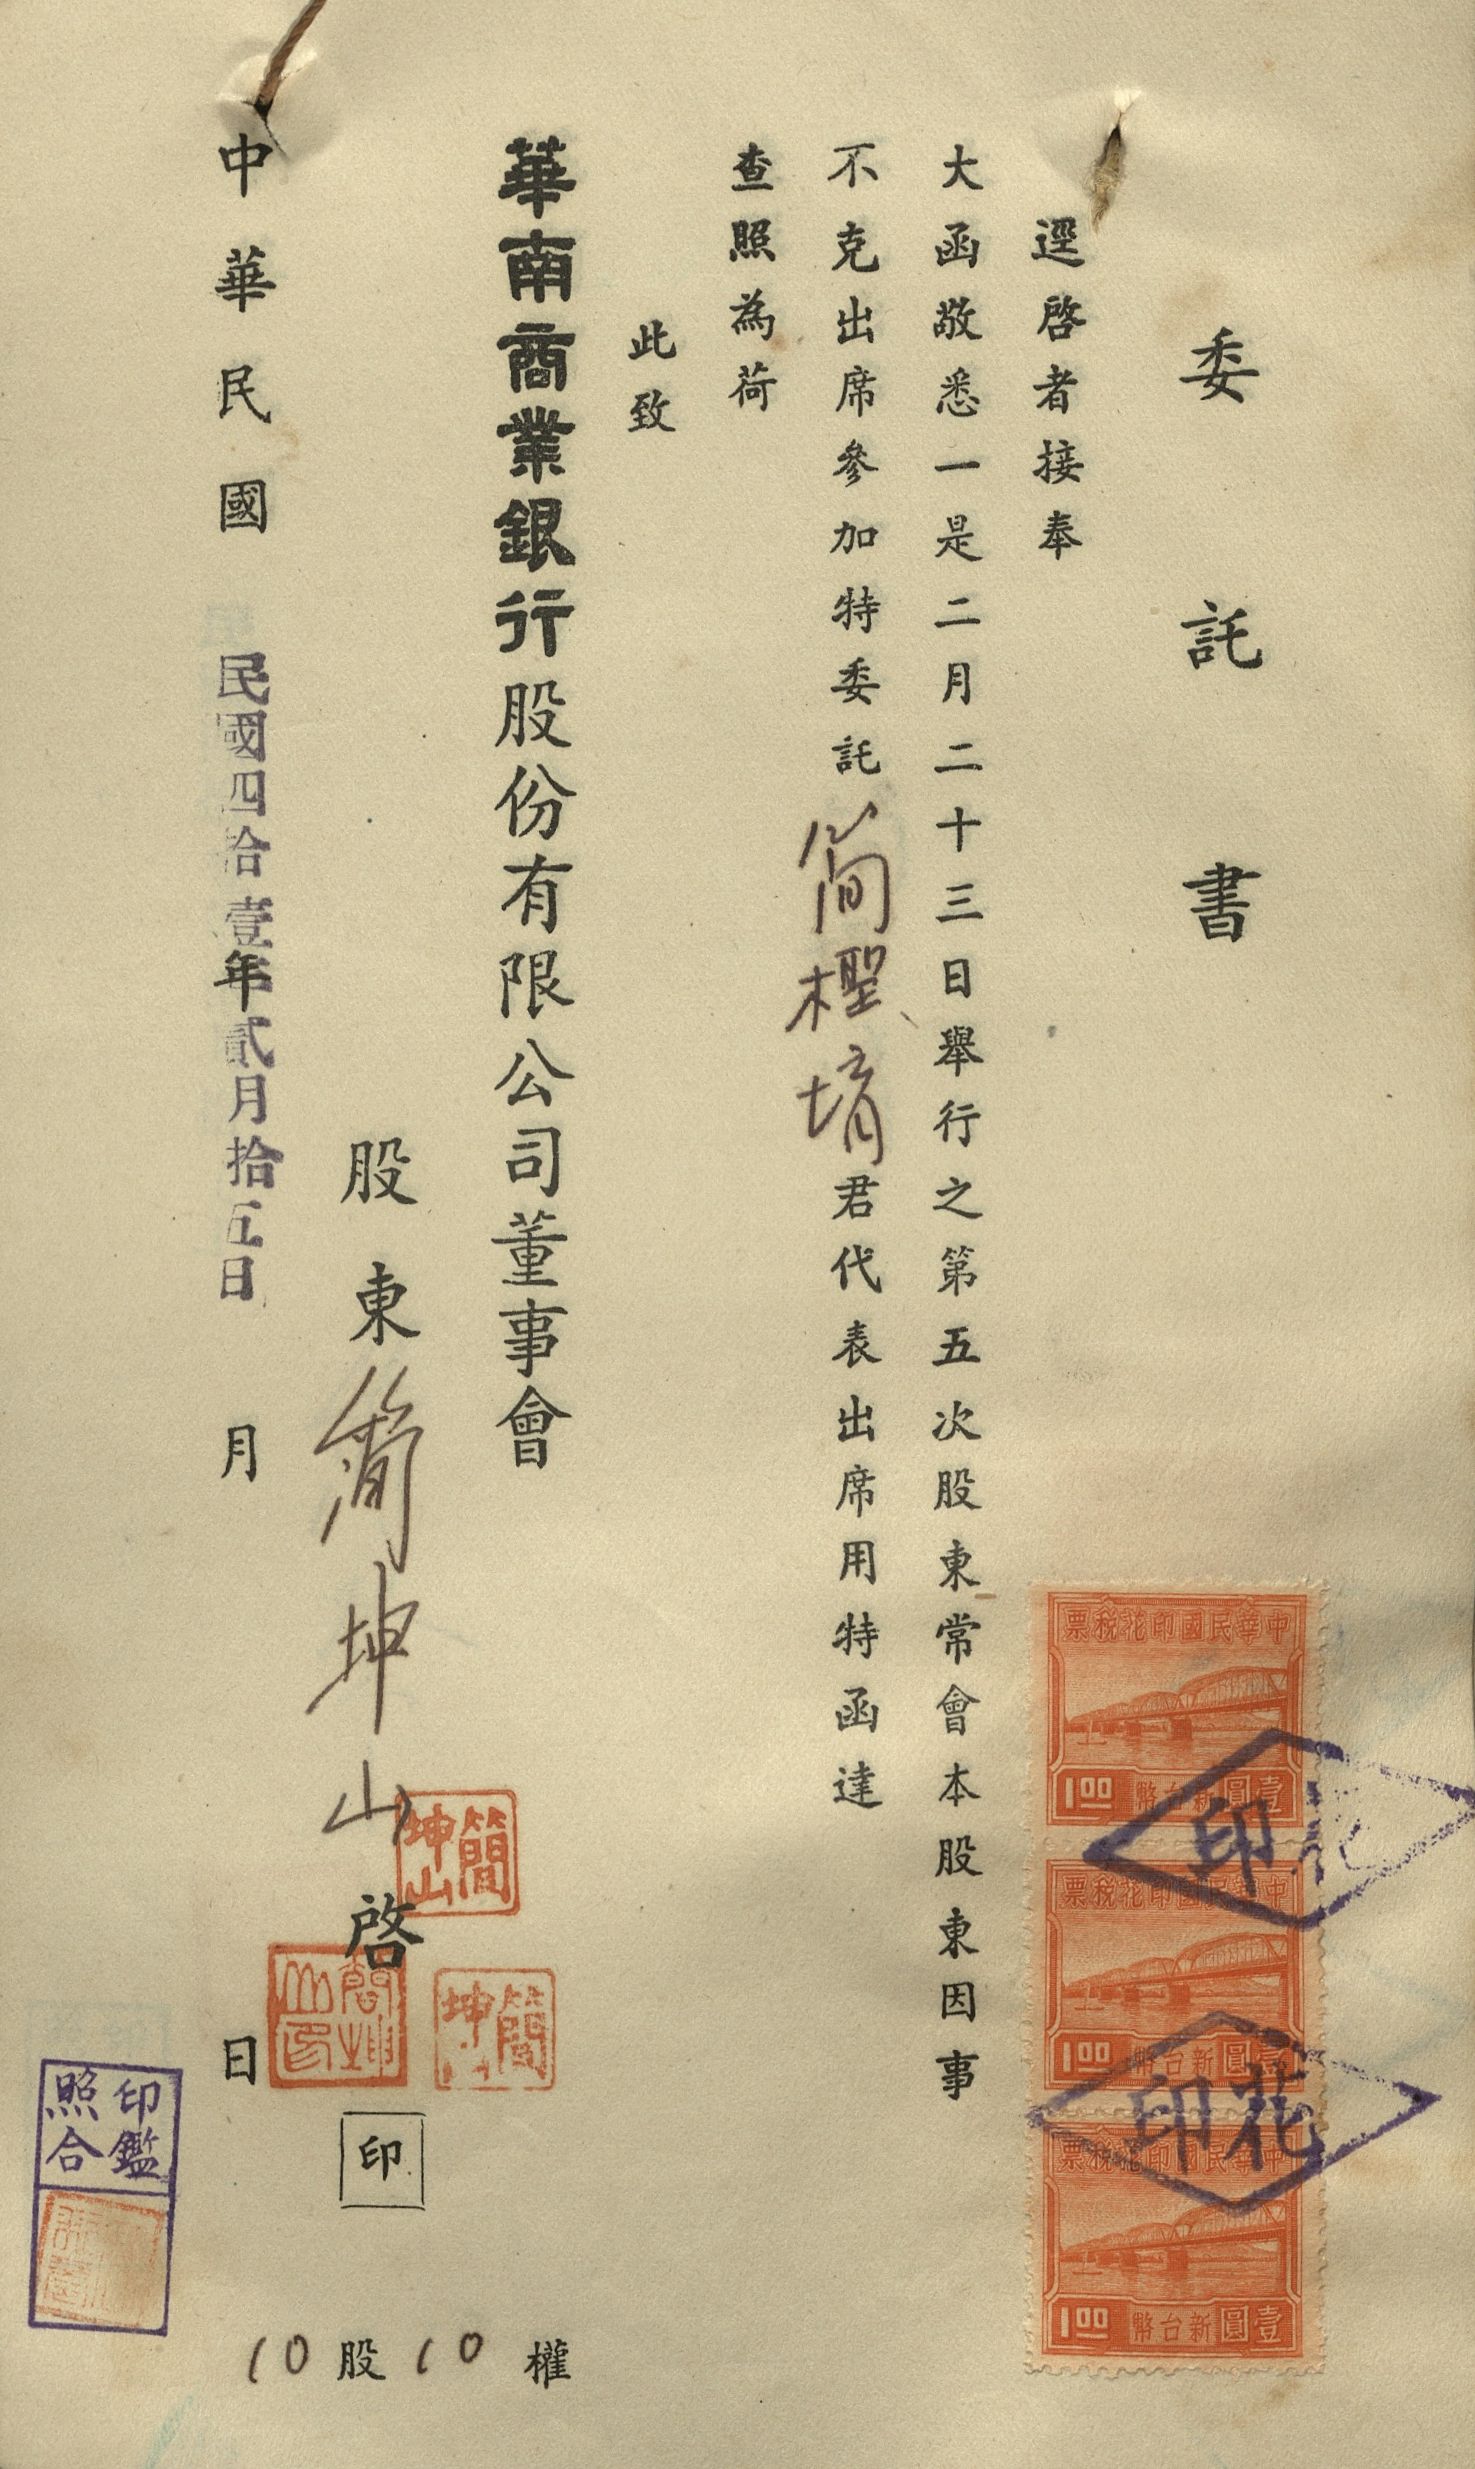 委託書
逕啓者接奉
大函敬悉一是二月二十三日舉行之第五次股東常會本股東因事
不克出席參加特委託簡檉堉君代表出席用特函達
查照為荷
此致
華南商業銀行股份有限公司董事會
股東簡坤山啓 印
簡坤山
簡坤
中華民國 月 日
民國四拾壹年貳月拾五日
10股10權
印鑑照合
中華民國印花稅票
壹圓新台幣 1.00
中華民國印花稅票
壹圓新台幣 1.00
中華民國印花稅票
壹圓新台幣 1.00
花印
花印